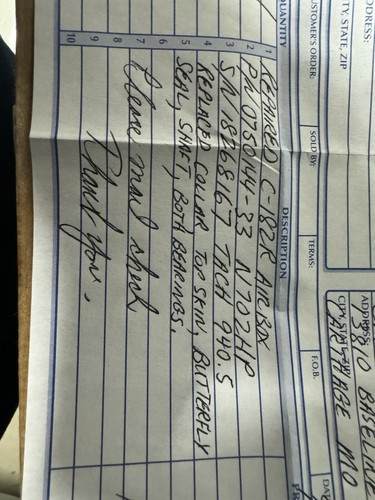 DDRESS:
TY, STATE, ZIP
CUSTOMER'S ORDER:
SOLD BY:
TERMS:
F.O.B.
DA
ADDRESS:
CITY, STATE, ZIP
CARTHAGE MO
QUANTITY
DESCRIPTION
1 REPAIRED C-182R AIRBOX
2 PN 0750144-33 N702HP
3 S/N 18268167 TACH 940.5
4 REPLACED COLLAR TOP SKIN, BUTTERFLY
5 SEAL, SHAFT, BOTH BEARINGS,
6
7 Please mail check
8
9 Thank you.
10